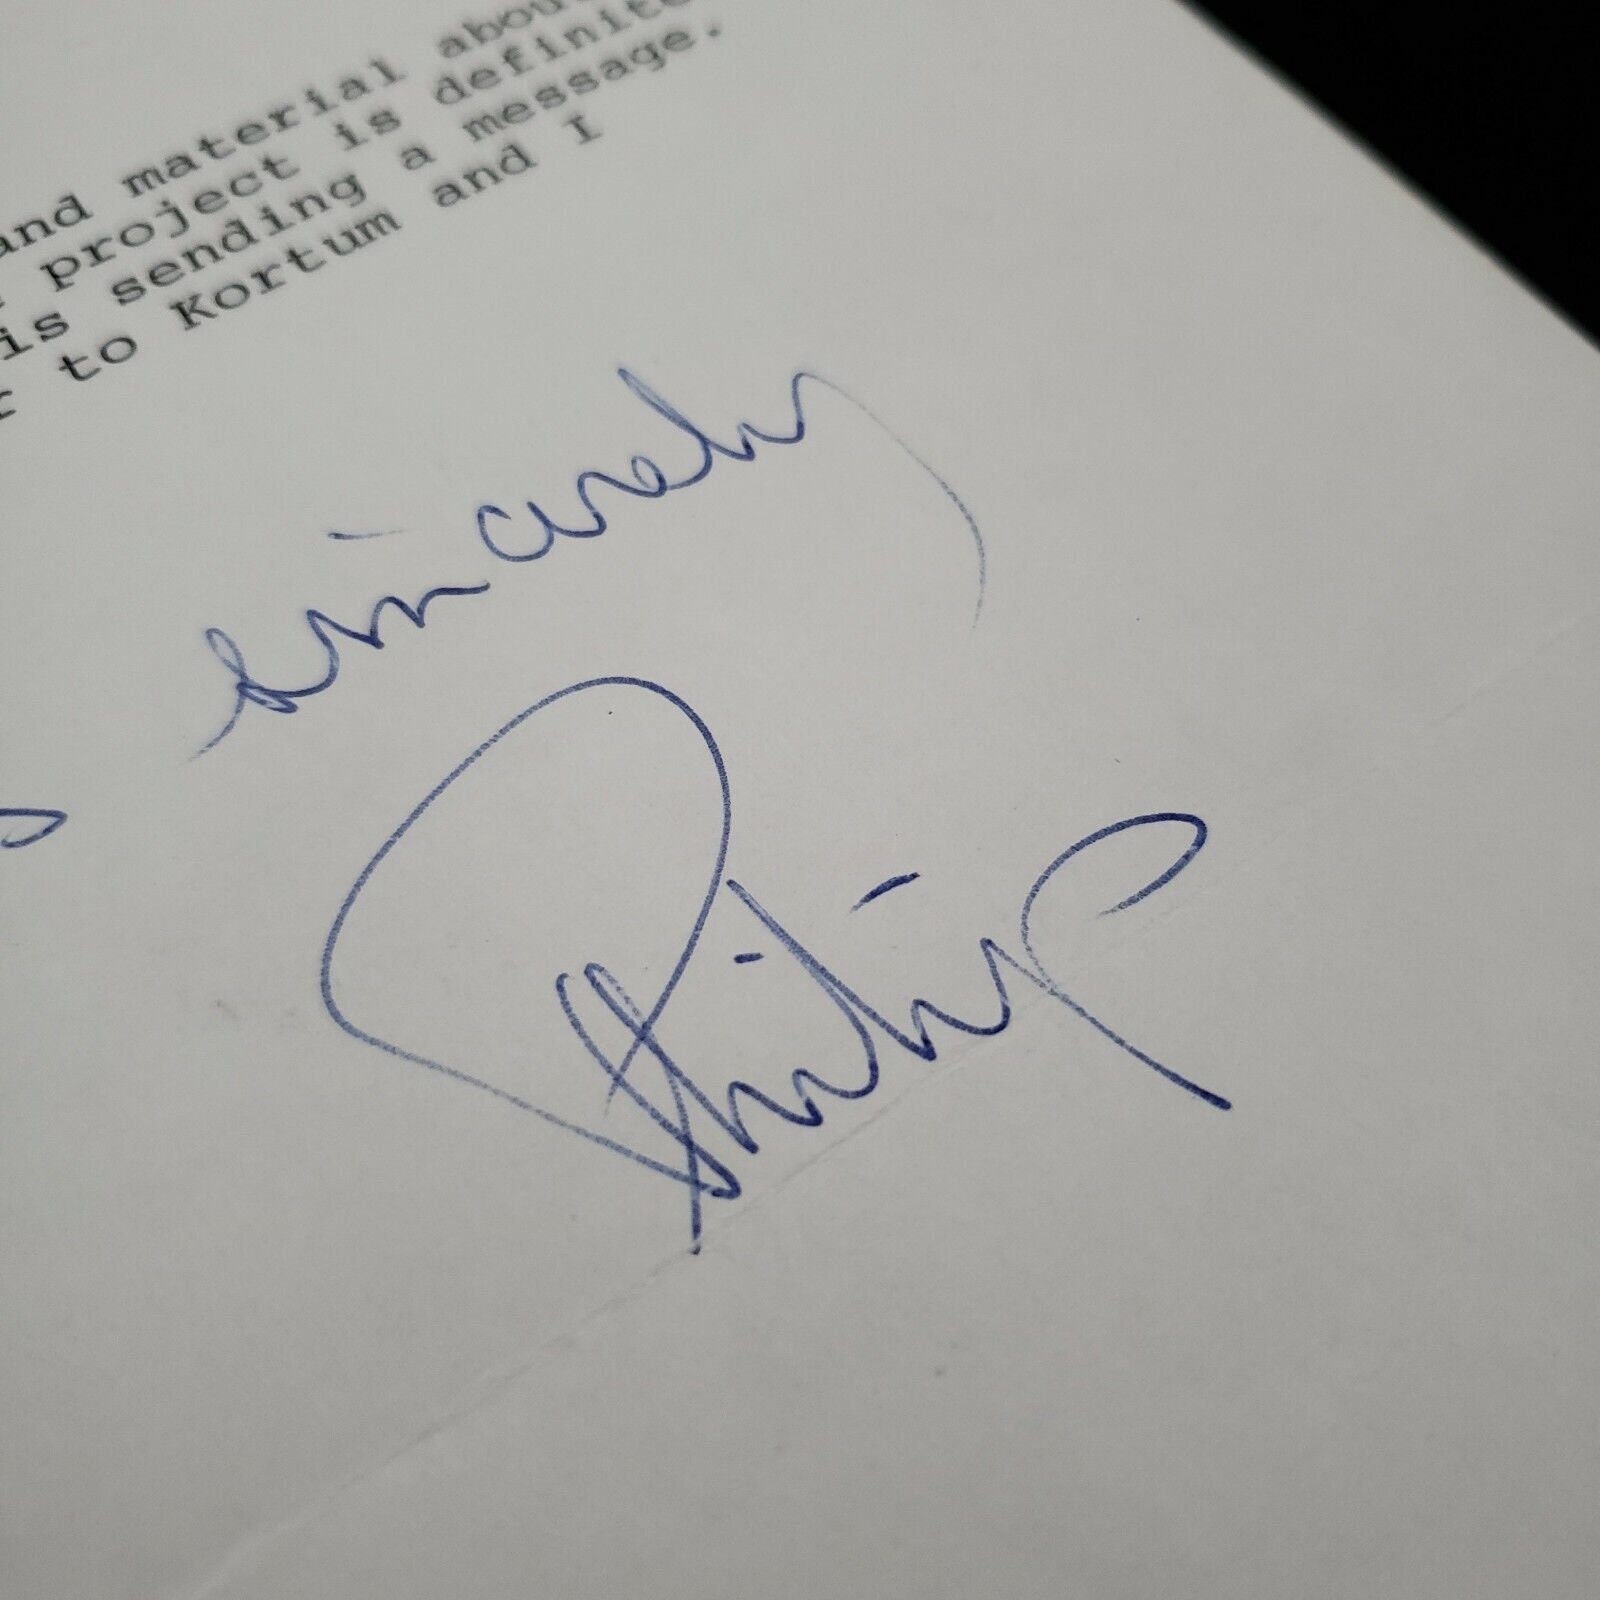 and material about
project is definite
is sending a message.
r to Kortum and I
sincerely
Philip